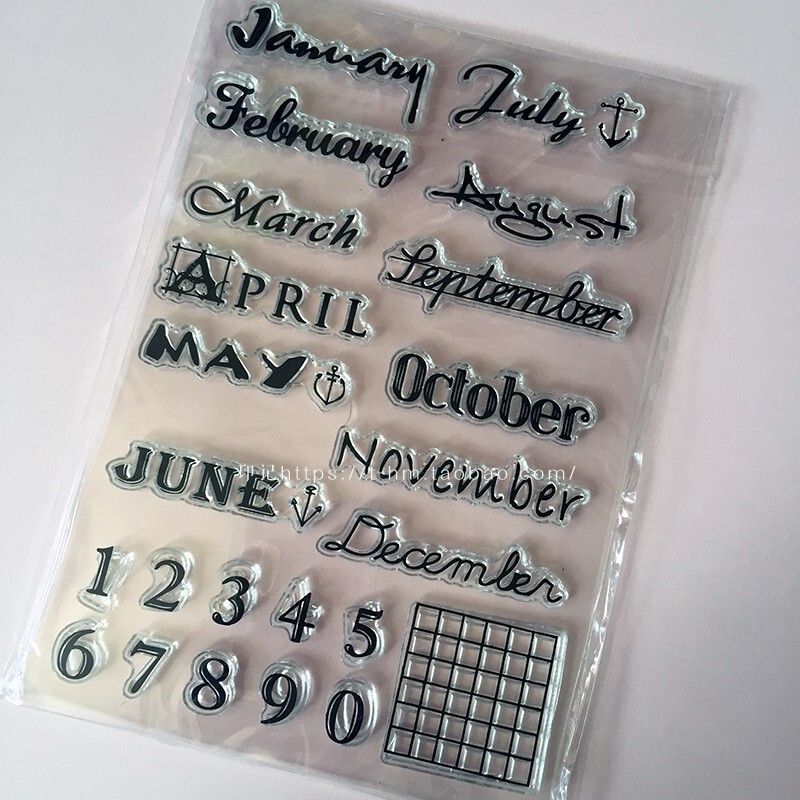 January
February
March
APRIL
MAY
JUNE
July
August
September
October
November
December
https://l-hm.taobao.com/
1 2 3 4 5
6 7 8 9 0